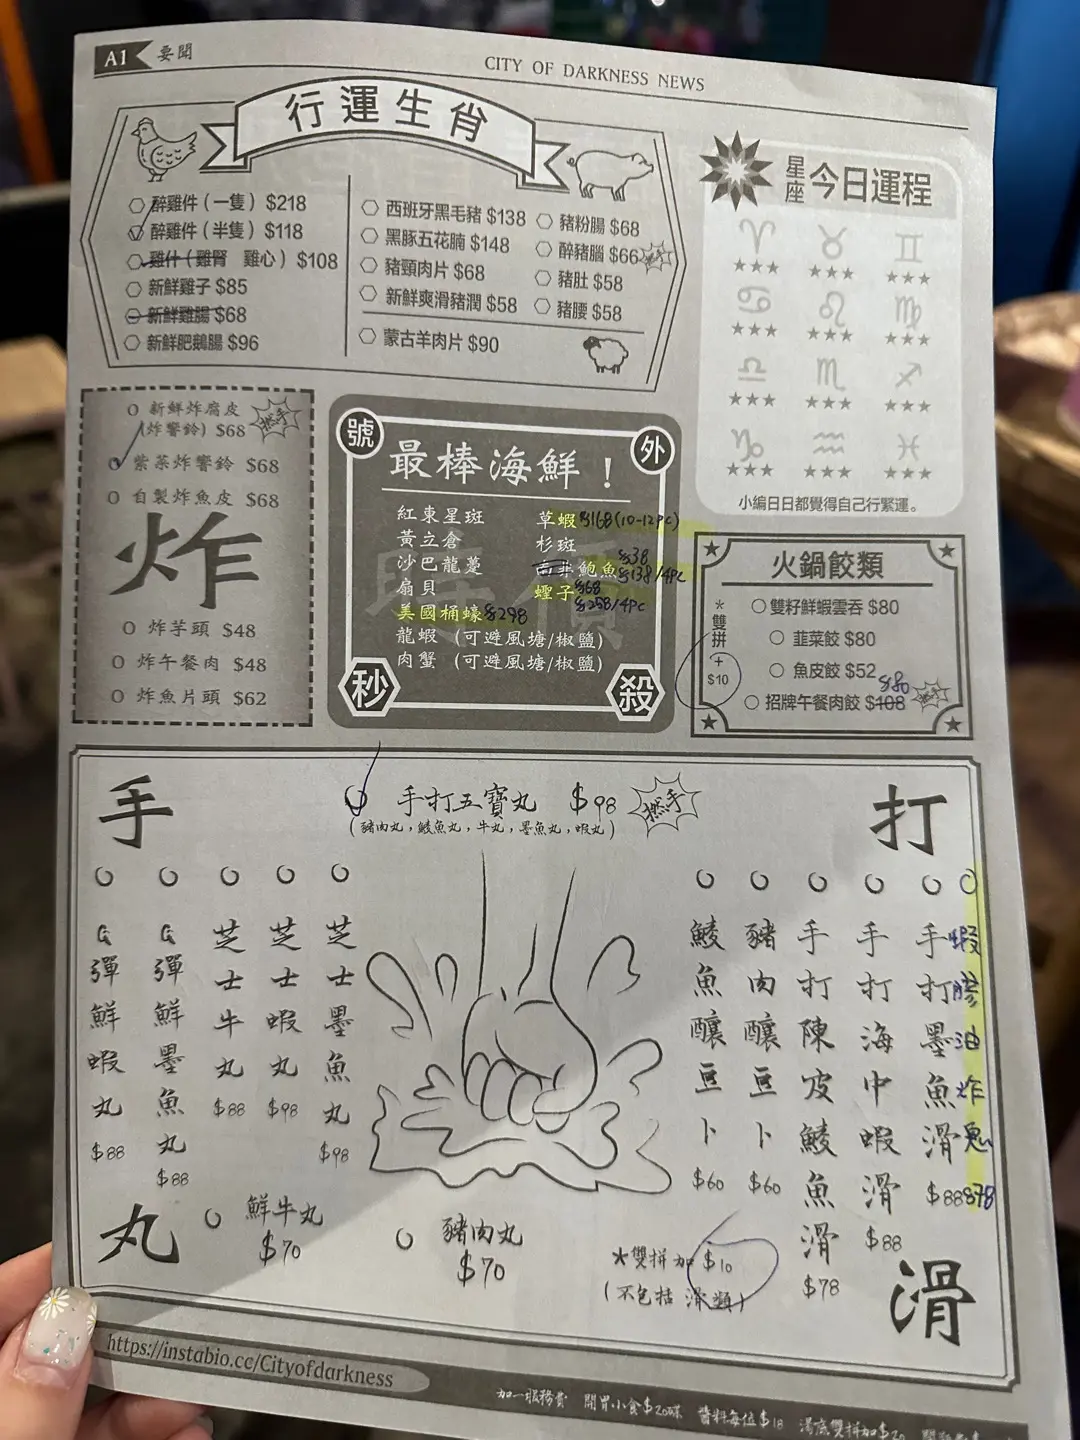 A1 要聞
CITY OF DARKNESS NEWS
行運生肖
醉雞件（一隻）$218
醉雞件（半隻）$118
雞什（雞腎 雞心）$108
新鮮雞子 $85
新鮮雞腸 $68
新鮮肥鵝腸 $96
西班牙黑毛豬 $138
黑豚五花腩 $148
豬頸肉片 $68
新鮮爽滑豬潤 $58
豬粉腸 $68
醉豬腦 $66
豬肚 $58
豬腰 $58
蒙古羊肉片 $90
星座 今日運程
♈ ♉ ♊
★★★ ★★★ ★★★
♋ ♌ ♍
★★★ ★★★ ★★★
♎ ♏ ♐
★★★ ★★★ ★★★
♑ ♒ ♓
★★★ ★★★ ★★★
小編日日都覺得自己行緊運。
新鮮炸腐皮
(炸響鈴) $68
紫菜炸響鈴 $68
自製炸魚皮 $68
炸
炸芋頭 $48
炸午餐肉 $48
炸魚片頭 $62
號 外
最棒海鮮！
紅東星斑
黃立倉
沙巴龍躉
扇貝
美國桶蠔 $298
龍蝦（可避風塘/椒鹽）
肉蟹（可避風塘/椒鹽）
草蝦 $168(10-12pc)
杉斑
鮑魚 $38
$138/4pc
蟶子 $68
$258/4pc
秒 殺
火鍋餃類
*雙拼+$10
雙籽鮮蝦雲吞 $80
韮菜餃 $80
魚皮餃 $52
$80
招牌午餐肉餃 $108
手打
手打五寶丸 $98
（豬肉丸，鯪魚丸，牛丸，墨魚丸，蝦丸）
G彈鮮蝦丸 $88
G彈鮮墨魚丸 $88
芝士牛丸 $88
芝士蝦丸 $98
芝士墨魚丸 $98
鯪魚釀豆卜 $60
豬肉釀豆卜 $60
手打陳皮鯪魚滑 $78
手打海中蝦滑 $88
手打墨魚滑 $88
蝦膠油炸鬼 $78
丸
鮮牛丸
$70
豬肉丸
$70
*雙拼加 $10
（不包括滑類）
滑
https://instabio.cc/Cityofdarkness
加一服務費 開胃小食$20碟 醬料每位$18 湯底雙拼加$20